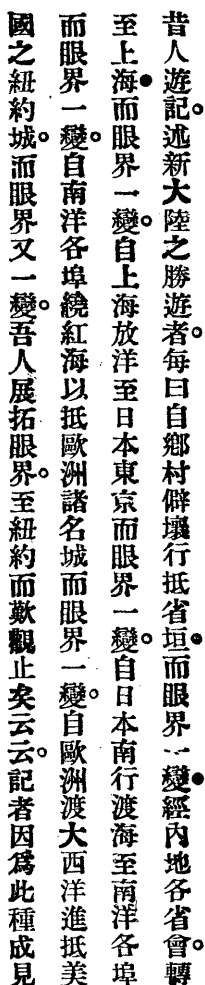 昔人遊記。述新大陸之勝遊者。每曰自鄉村僻壤行抵省垣●而眼界一變●經內地各省會。轉
至上海●而眼界一變。自上海放洋至日本東京而眼界一變。自日本南行渡海至南洋各埠
而眼界一變。自南洋各埠繞紅海以抵歐洲諸名城而眼界一變。自歐洲渡大西洋進抵美
國之紐約城。而眼界又一變。吾人展拓眼界。至紐約而歎觀止矣云云。記者因爲此種成見